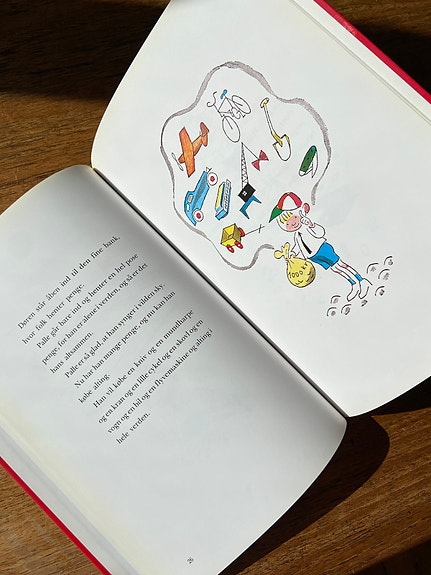 Døren står åben ind til den fine bank,
hvor folk henter penge.
Palle går bare ind og henter en hel pose
penge, for han er alene i verden, og så er det
hans altsammen.
Palle er så glad, at han synger i vilden sky.
Nu har han mange penge, og nu kan han
købe alting.
Han vil købe en kniv og en mundharpe
og en kran og en lille cykel og en skovl og en
vogn og en bil og en flyvemaskine og alting i
hele verden.
26